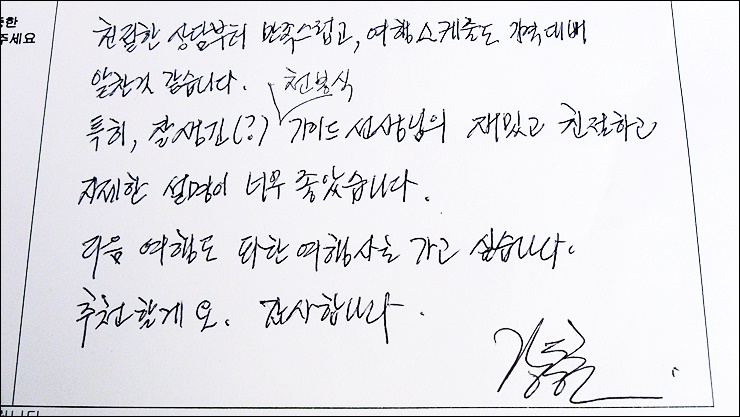 한
주세요
친절한 상담부터 만족스럽고, 여행스케줄도 가격대비
알찬것 같습니다. 천봉식
특히, 잘생긴(?) 가이드 선생님의 재밌고 친절하고
자세한 설명이 너무 좋았습니다.
다음 여행도 또한 여행사로 가고 싶습니다.
추천할게요. 감사합니다.